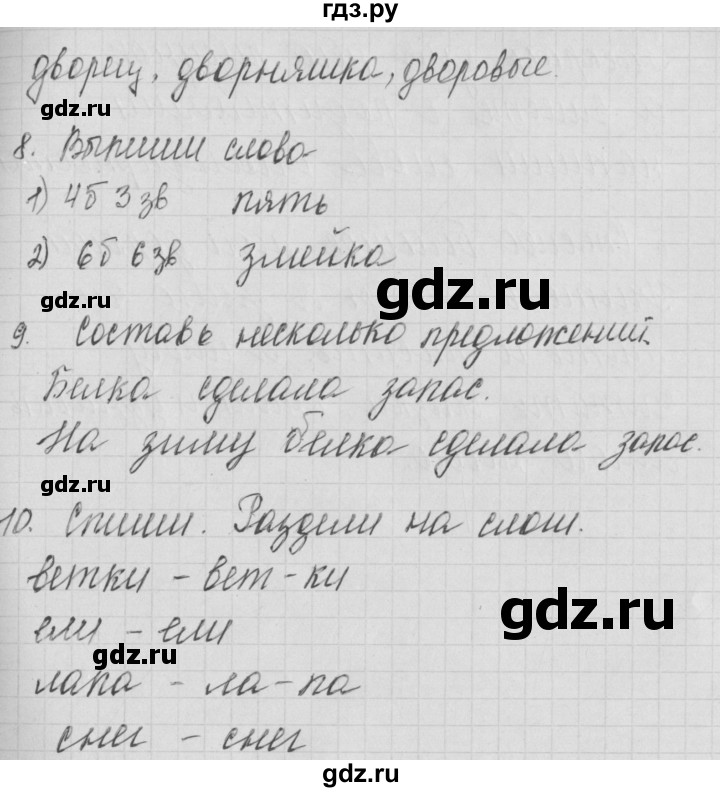 гдз.ру
дворец, дворняшка, дворовые.
gdz.ru
8. Выпиши слова
1) 4б 3 зв пять
gdz.ru
2) 6б 6 зв змейка
gdz.ru
gdz.ru
9. Составь несколько предложений.
Белка сделала запас.
На зиму белка сделала запас.
gdz.ru
10. Спиши. Раздели на слоги.
ветки - вет-ки
gdz.ru
ели - ели
gdz.ru
лапа - ла-па
снег - снег
gdz.ru